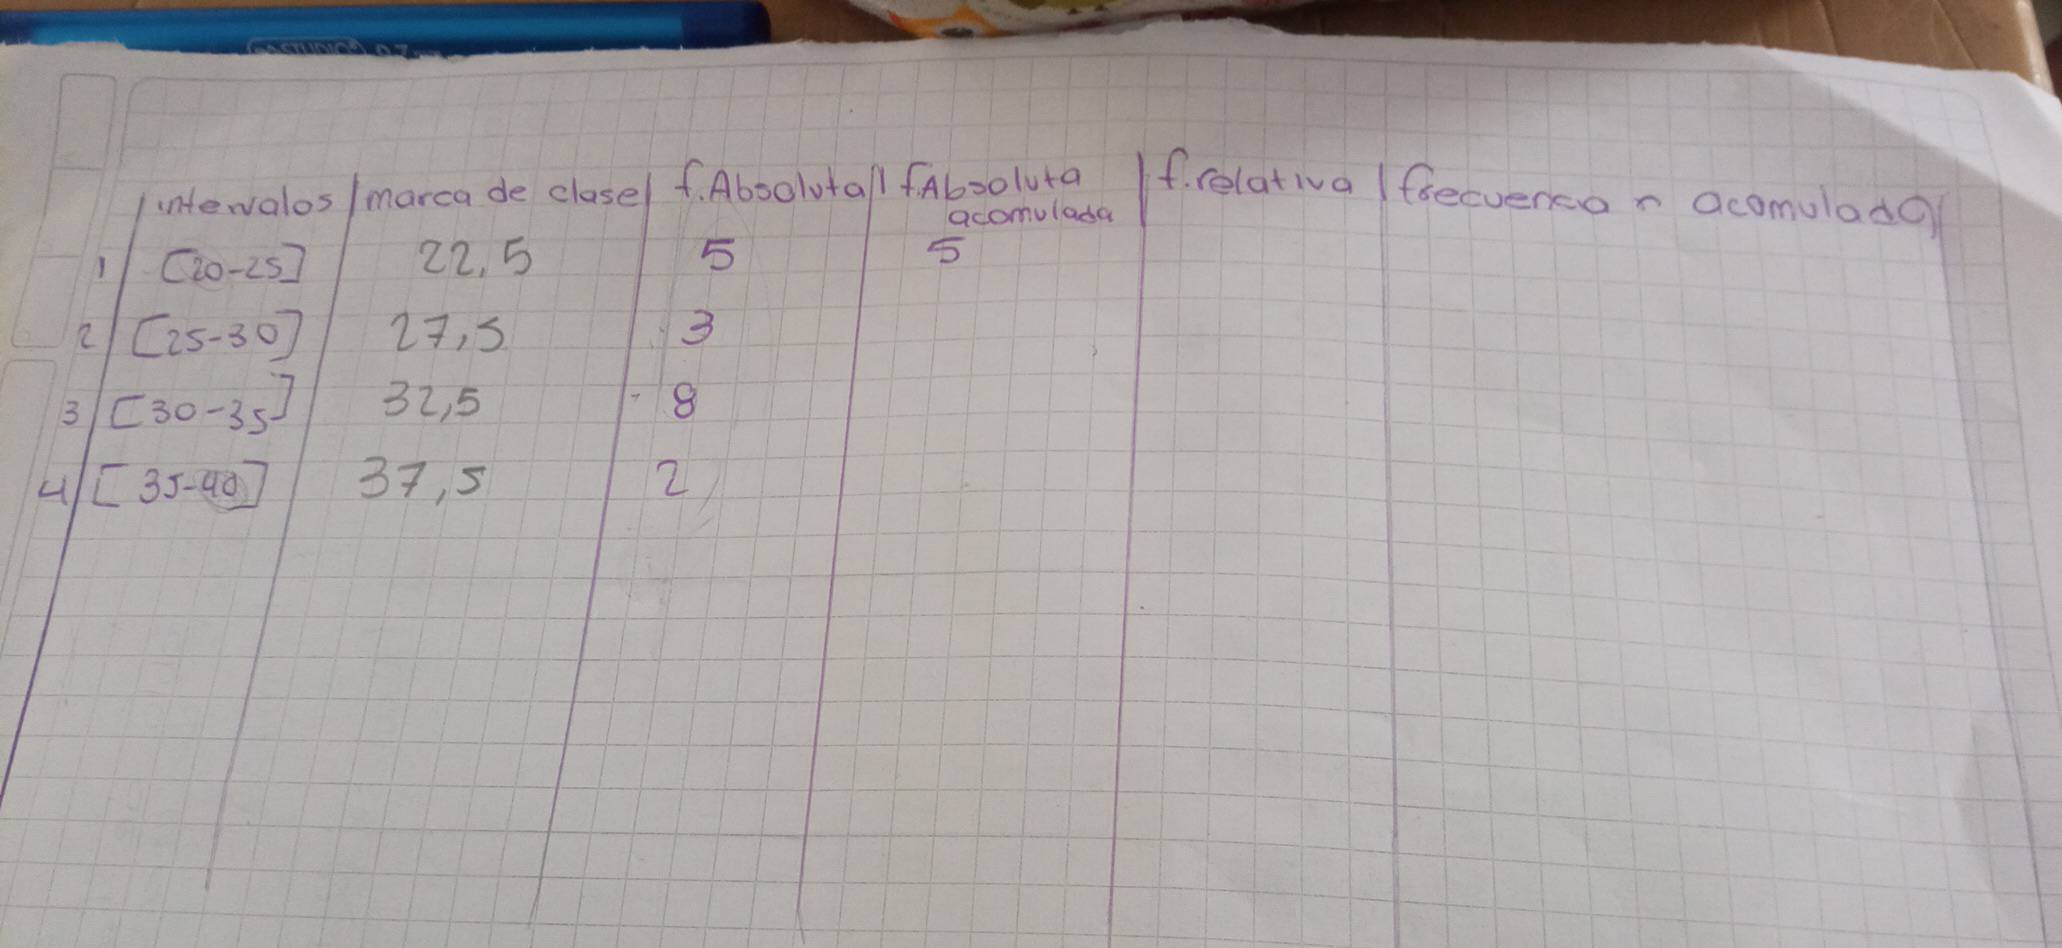 intervalos | marca de clase | f. Absoluta | f. Absoluta acomulada | f. relativa | frecuencia r acomulada
1 [20-25] 22,5 5 5
2 [25-30] 27,5 3
3 [30-35] 32,5 8
4 [35-40] 37,5 2